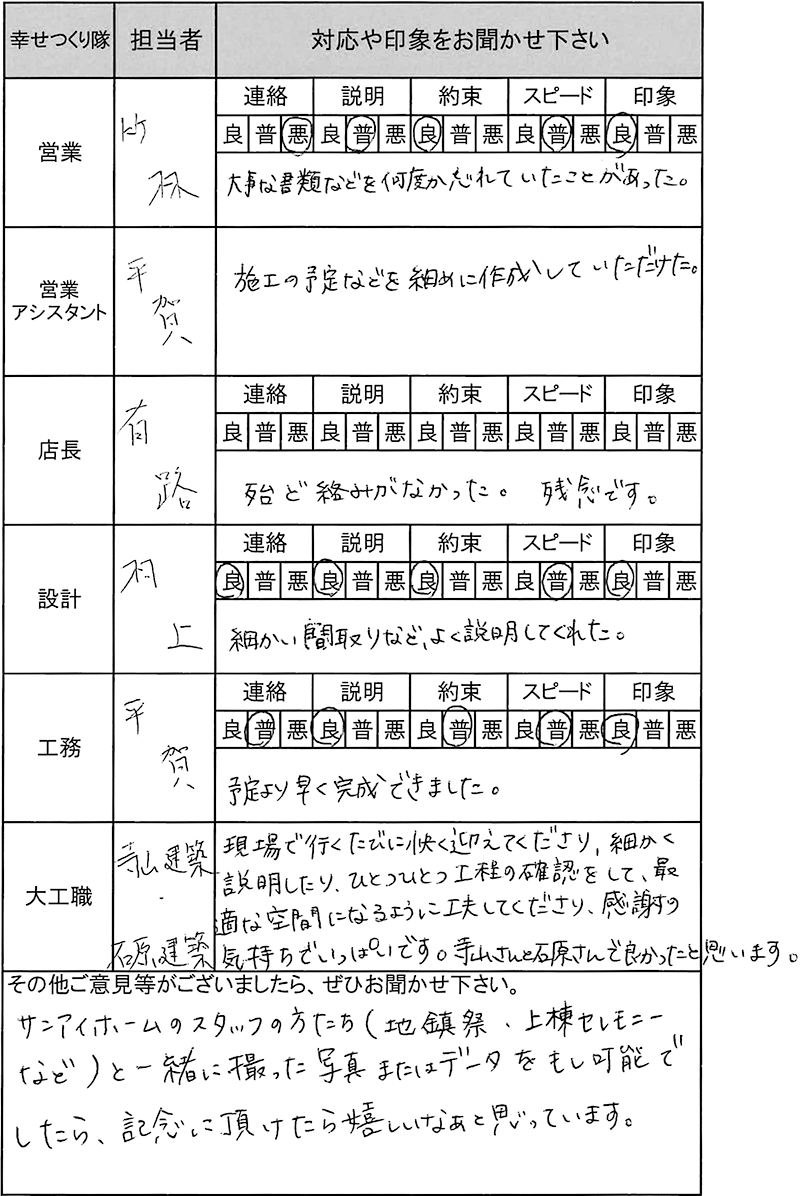 幸せつくり隊 担当者 対応や印象をお聞かせ下さい
連絡 説明 約束 スピード 印象
営業 竹林 良 普 悪 良 普 悪 良 普 悪 良 普 悪 良 普 悪
大事な書類などを何度か忘れていたことがあった。
営業
アシスタント
平賀
施工の予定などを細めに作成していただけた。
連絡 説明 約束 スピード 印象
店長 有路 良 普 悪 良 普 悪 良 普 悪 良 普 悪 良 普 悪
殆ど絡みがなかった。 残念です。
連絡 説明 約束 スピード 印象
設計 村上 良 普 悪 良 普 悪 良 普 悪 良 普 悪 良 普 悪
細かい間取りなど、よく説明してくれた。
連絡 説明 約束 スピード 印象
工務 平賀 良 普 悪 良 普 悪 良 普 悪 良 普 悪 良 普 悪
予定より早く完成できました。
大工職
寺山建築
・
石原建築
現場で行くたびに快く迎えてくださり、細かく
説明したり、ひとつひとつ工程の確認をして、最
適な空間になるように工夫してくださり、感謝の
気持ちでいっぱいです。寺山さんと石原さんで良かったと思います。
その他ご意見等がございましたら、ぜひお聞かせ下さい。
サンアイホームのスタッフの方たち(地鎮祭、上棟セレモニー
など)と一緒に撮った写真またはデータをもし可能で
したら、記念に頂けたら嬉しいなぁと思っています。